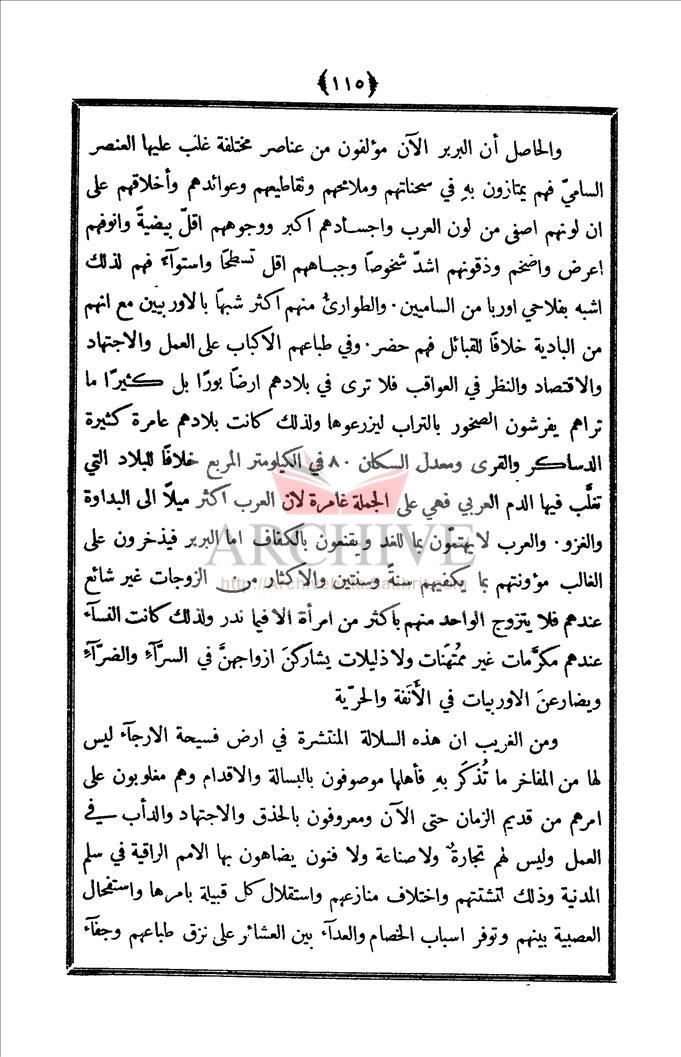 ﴿١١٥﴾
والحاصل أن البربر الآن مؤلفون من عناصر مختلفة غلب عليها العنصر
الساميّ فهم يمتازون بهِ في سحناتهم وملامحهم ونقاطيعهم وعوائدهم وأخلاقهم على
ان لونهم اصفى من لون العرب واجسادهم اكبر ووجوههم اقلّ بيضيةً وانوفهم
اعرض واضخم وذقونهم اشدّ شخوصاً وجباههم اقل تسطحًا واستوآءً فهم لذلك
اشبه بفلاحي اوربا من الساميين . والطوارئُ منهم اكثر شبهًا بالاوربيين مع انهم
من البادية خلافًا للقبائل فهم حضر . وفي طباعهم الاكباب على العمل والاجتهاد
والاقتصاد والنظر في العواقب فلا ترى في بلادهم ارضًا بورًا بل كثيرًا ما
تراهم يفرشون الصخور بالتراب ليزرعوها ولذلك كانت بلادهم عامرة كثيرة
الدساكر والقرى ومعدل السكان ٨٠ في الكيلومتر المربع خلافًا للبلاد التي
تغلَّب فيها الدم العربي فهي على الجملة غامرة لان العرب اكثر ميلاً الى البداوة
والغزو . والعرب لا يهتمّون بما للغد ويقنعون بالكفاف اما البربر فيذخرون على
الغالب مؤونتهم بما يكفيهم سنةً وسنتين والاكثار من الزوجات غير شائع
عندهم فلا يتزوج الواحد منهم باكثر من امرأة الا فيا ندر ولذلك كانت النسآء
عندهم مكرَّمات غير ممُتهَنات ولا ذليلات يشاركنَ ازواجهنَّ في السرّآءِ والضرّآءِ
ويضارعنَ الاوربيات في الأَنَفة والحرّية
ومن الغريب ان هذه السلالة المنتشرة في ارض فسيحة الارجآء ليس
لها من المفاخر ما تُذكَر بهِ فأهلها موصوفون بالبسالة والاقدام وهم مغلوبون على
امرهم من قديم الزمان حتى الآن ومعروفون بالحذق والاجتهاد والدأب في
العمل وليس لهم تجارة ولا صناعة ولا فنون يضاهون بها الامم الراقية في سلم
المدنية وذلك لتشتتهم واختلاف منازعهم واستقلال كل قبيلة بامرها واستفحال
العصبية بينهم وتوفر اسباب الخصام والعدآء بين العشائر على نزق طباعهم وجفآء
ARCHIVE